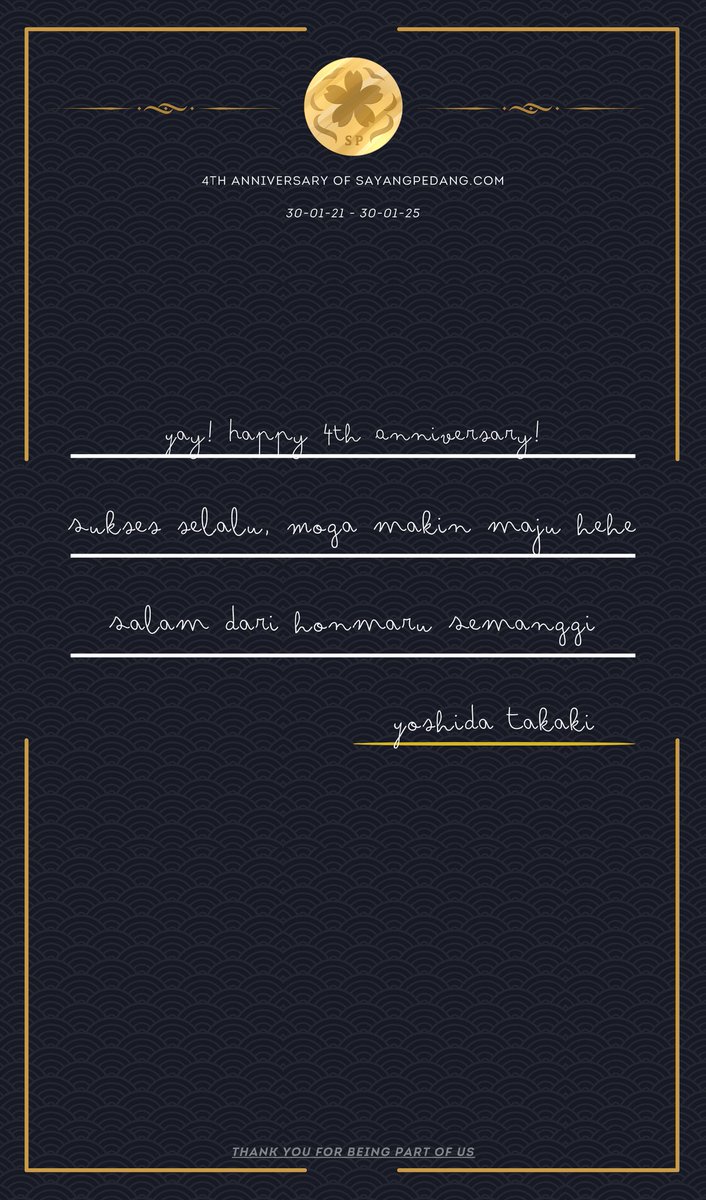 SP
4TH ANNIVERSARY OF SAYANGPEDANG.COM
30-01-21 - 30-01-25
yay! happy 4th anniversary!
sukses selalu, moga makin maju hehe
salam dari honmaru semanggi
yoshida takaki
THANK YOU FOR BEING PART OF US